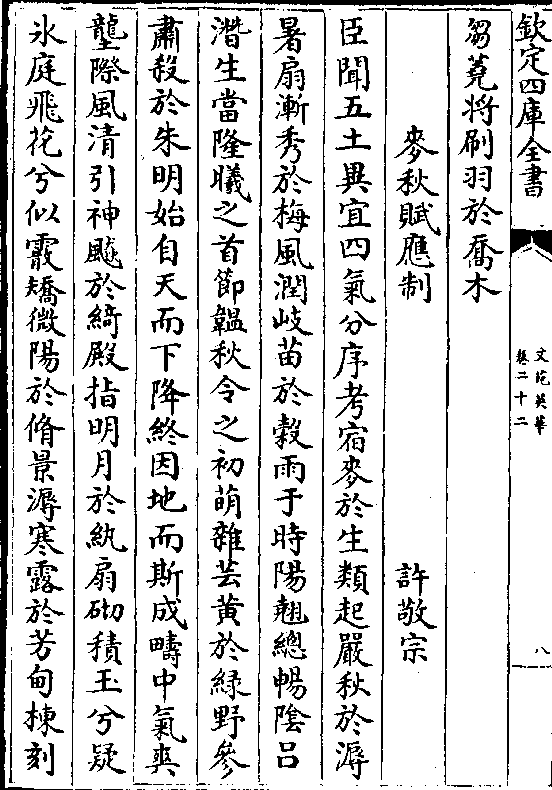 欽定四庫全書
文苑英華
卷二十二
八
芻蕘将刷羽於喬木
麥秋賦應制
許敬宗
臣聞五土異宜四氣分序考宿麥於生類起嚴秋於溽
暑扇漸秀於梅風潤岐苗於穀雨于時陽翹總暢隂吕
潛生當隆曦之首節韞秋令之初萌雜芸黄於緑野參
肅殺於朱明始自天而下降終因地而斯成疇中氣爽
壟際風清引神飈於綺殿指明月於紈扇砌積玉兮疑
氷庭飛花兮似霰矯微陽於脩景溽寒露於芳甸棟刻